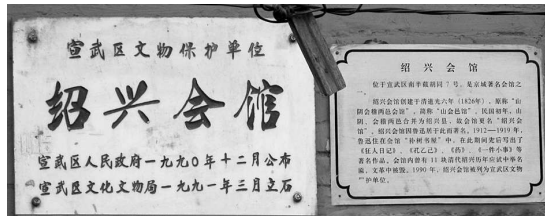 宣武区文物保护单位
绍兴会馆
宣武区人民政府一九九〇年十二月公布
宣武区文化文物局一九九一年三月立石
绍兴会馆
位于宣武区南半截胡同7号，是京城著名会馆之
一。
绍兴会馆创建于清道光六年（1826年），原称“山
阴会稽两邑会馆”，简称“山会邑馆”，民国初年，山
阴、会稽两邑合并为绍兴县，故会馆更名“绍兴会
馆”。绍兴会馆因鲁迅居于此而著名，1912—1919年，
鲁迅住在会馆“补树书屋”中，在此期间先后写出了
《狂人日记》、《孔乙己》、《药》、《一件小事》等
著名作品。会馆内曾有11块清代绍兴历年应试中举名
，文革中被毁。1990年，绍兴会馆被列为宣武区文物
护单位。